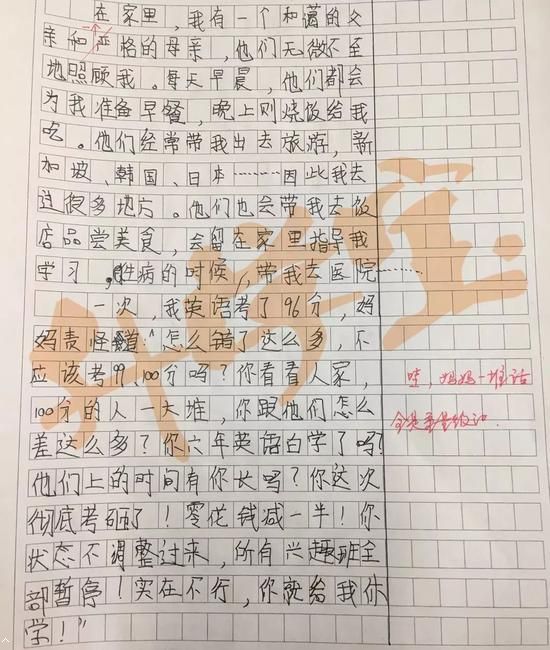 在家里,我有一个和蔼的父
亲和严格的母亲,他们无微不至
地照顾我。每天早晨,他们都会
为我准备早餐,晚上则烧饭给我
吃。他们经常带我出去旅游,新
加坡、韩国、日本………因此我去
过很多地方。他们也会带我去饭
店品尝美食,会留在家里指导我
学习,生病的时候,带我去医院………
一次,我英语考了96分,妈
妈责怪道:“怎么错了这么多,不
应该考99、100分吗?你看看人家,
哇,妈妈一堆话
100分的人一大堆,你跟他们怎么
全是重量级
差这么多?你六年英语白学了吗?
他们上的时间有你长吗?你这次
彻底考砸了!零花钱减一半!你
状态不调整过来,所有兴趣班全
部暂停!实在不行,你就给我休
学!”
升学